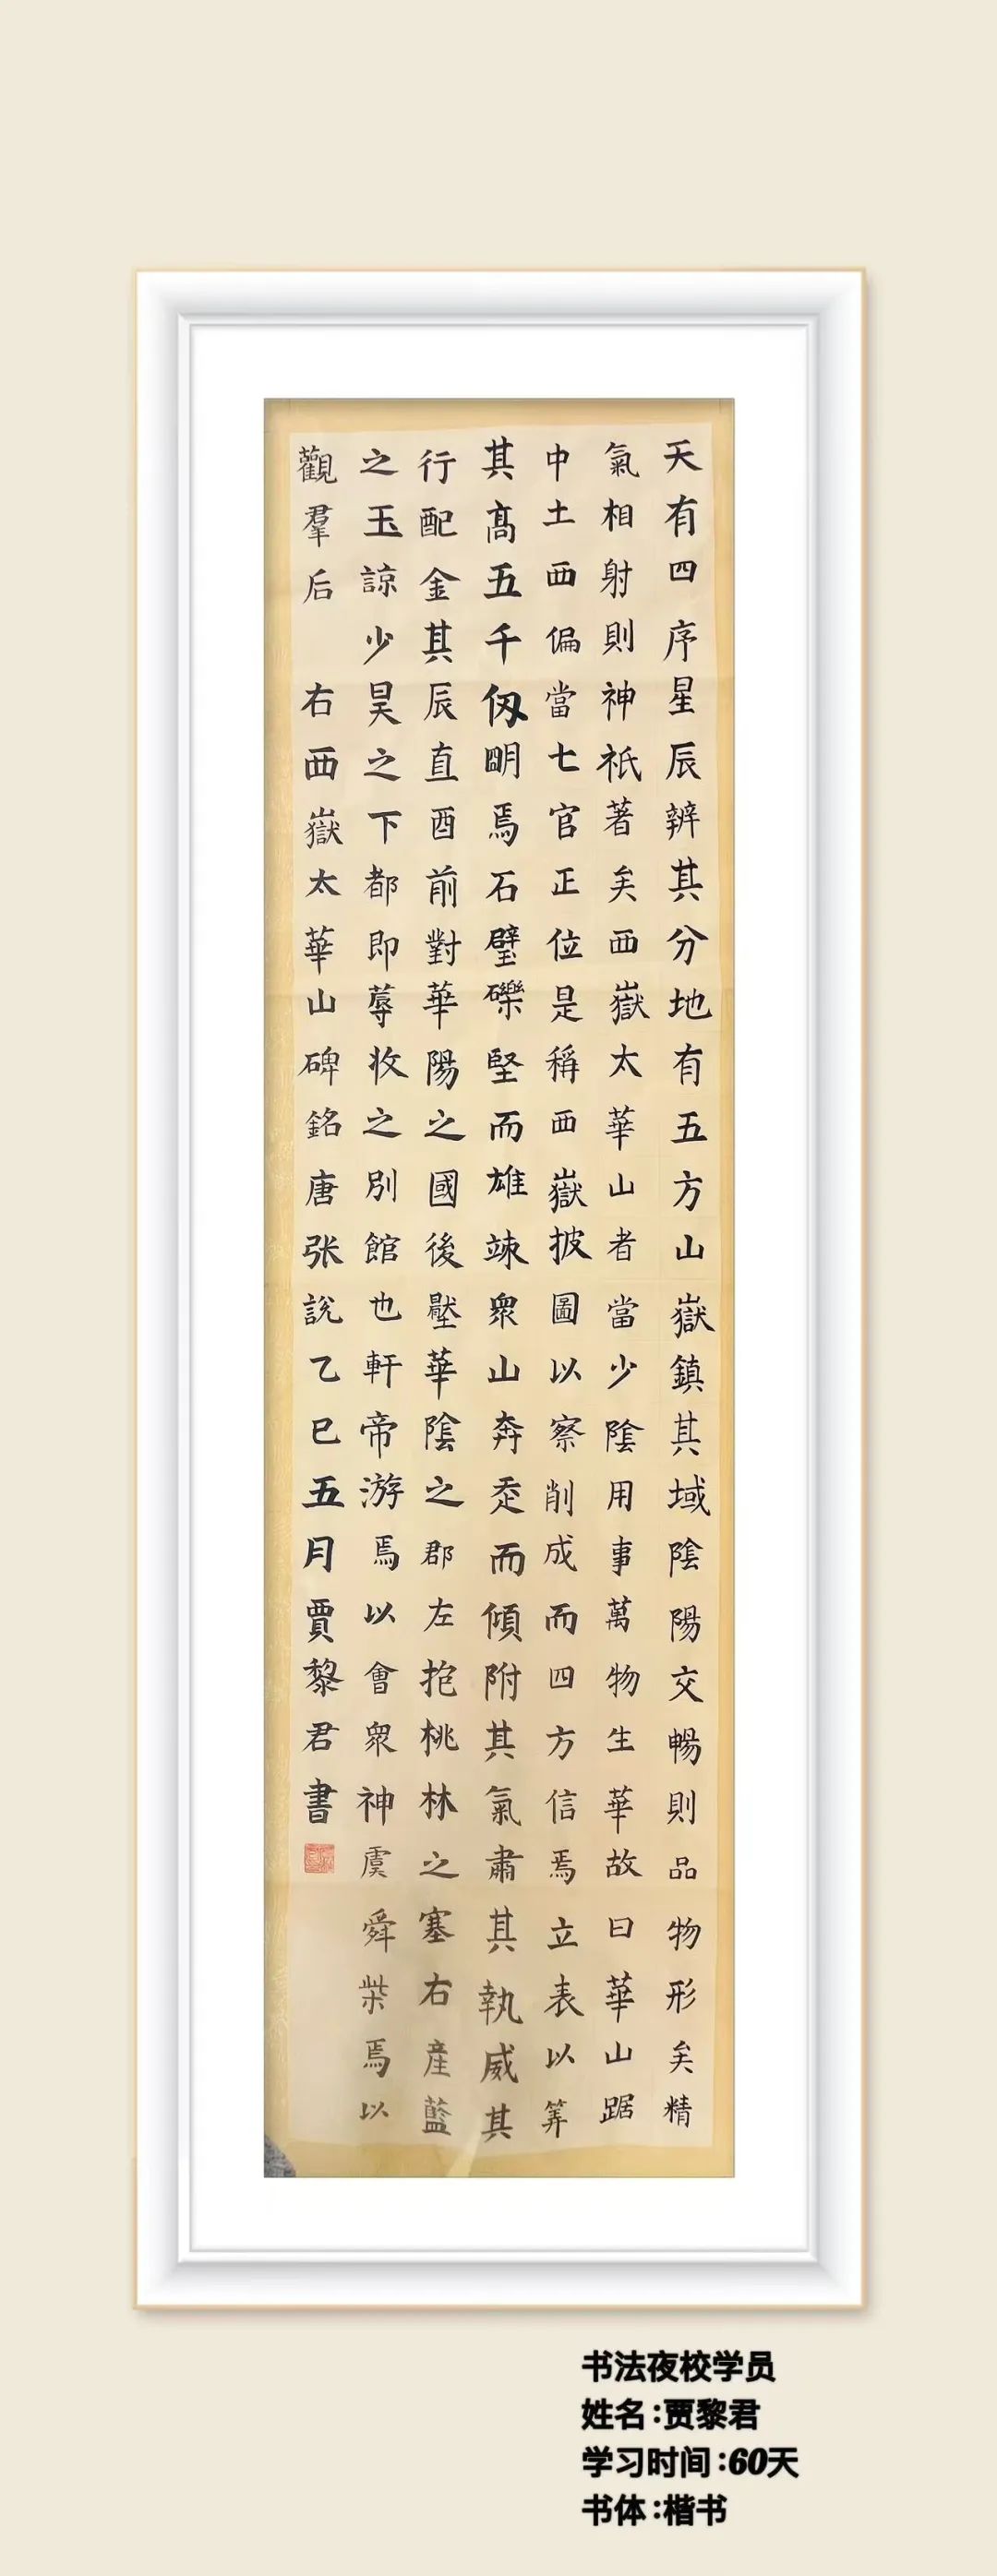 天有四序星辰辨其分地有五方山嶽鎮其域陰陽交暢則品物形矣精
氣相射則神祇著矣西嶽太華山者當少陰用事萬物生華故曰華山踞
中土西偏當七官正位是稱西嶽披圖以察削成而四方信焉立表以筭
其高五千仞明焉石壁礫堅而雄竦衆山奔走而傾附其氣肅其執威其
行配金其辰直酉前對華陽之國後壓華陰之郡左抱桃林之塞右產藍
之玉諒少昊之下都即蓐收之別館也軒帝游焉以會衆神虞舜柴焉以
觀羣后 右西嶽太華山碑銘唐张説乙巳五月賈黎君書
书法夜校学员
姓名:贾黎君
学习时间:60天
书体:楷书